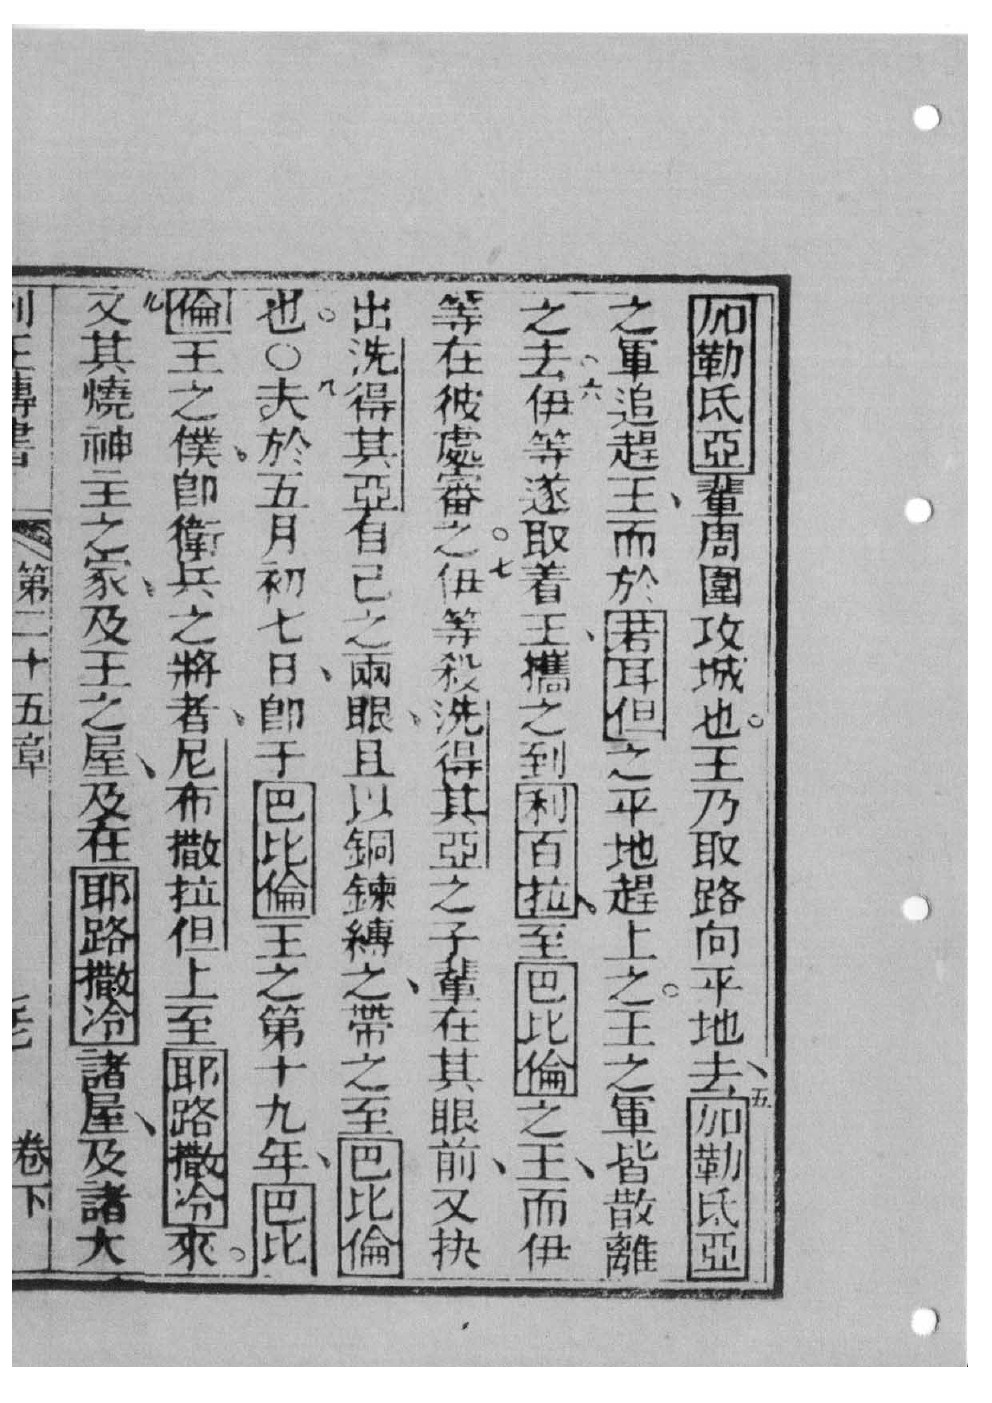 加勒氐亞輩周圍攻城也。王乃取路向平地去、五加勒氐亞
之軍追趕王、而於若耳但之平地趕上之。王之軍皆散離
之去。六伊等遂取着王、攜之到利百拉、至巴比倫之王、而伊
等在彼處審之。七伊等殺洗得其亞之子輩在其眼前、又抉
出洗得其亞自己之兩眼、且以銅鍊縛之、帶之至巴比倫
也。○八夫於五月初七日、卽于巴比倫王之第十九年、巴比
倫王之僕、卽衛兵之將者、尼布撒拉但上至耶路撒冷來。
九又其燒神主之家、及王之屋、及在耶路撒冷諸屋、及諸大
列王傳書 第二十五章 卷下